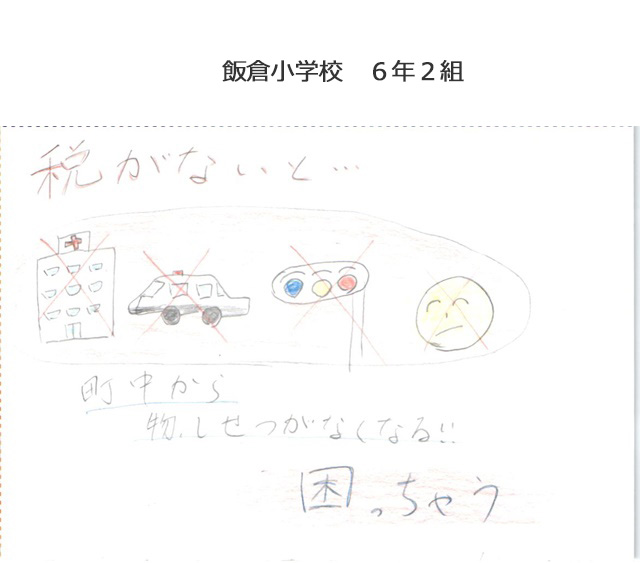 飯倉小学校　６年２組
税がないと…
町中から
物、しせつがなくなる!!
困っちゃう